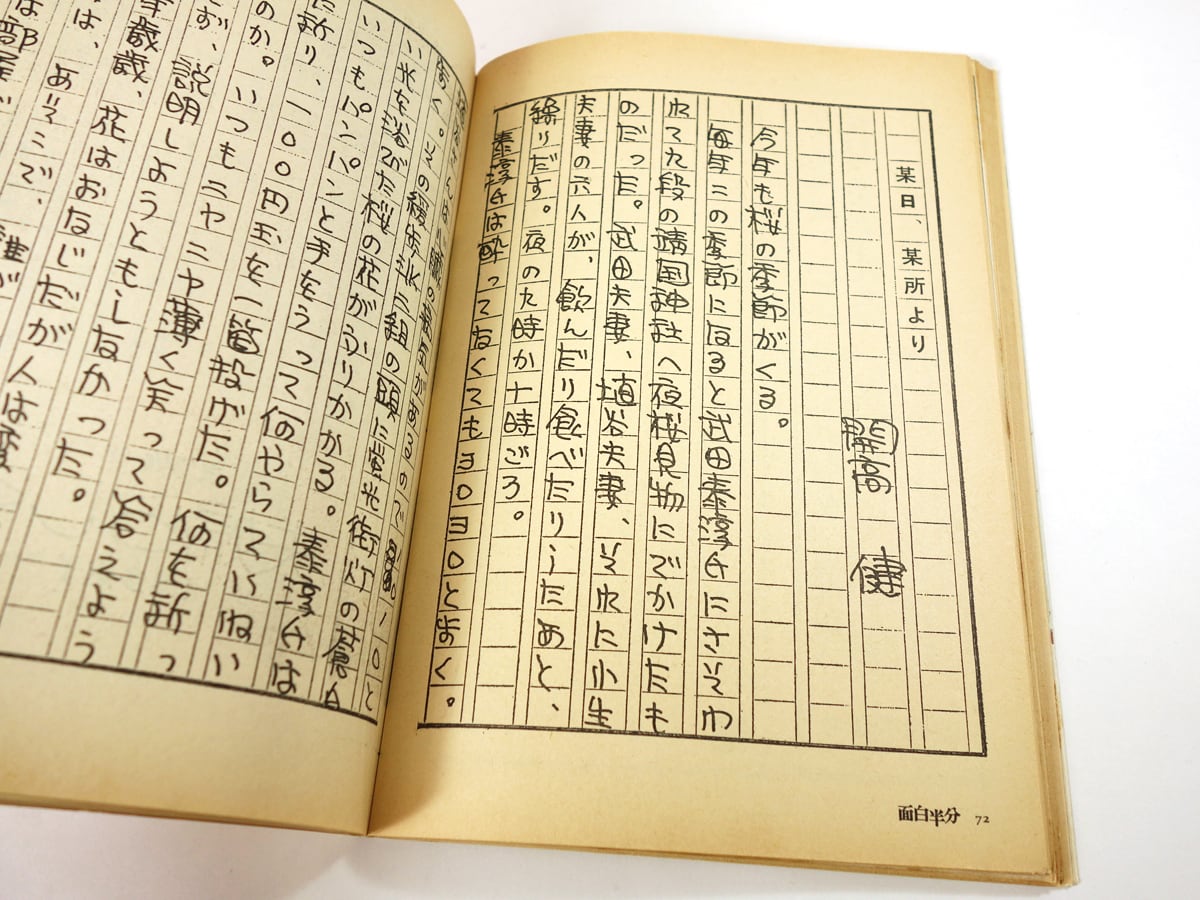 某日、某所より
開高 健
今年も桜の季節がくる。
毎年この季節になると武田泰淳氏にさそわ
れて九段の靖国神社へ夜桜見物にでかけたも
のだった。武田夫妻、埴谷夫妻、それに小生
夫妻の六人が、飲んだり食べたりしたあと、
繰りだす。夜の九時か十時ごろ。
泰淳氏は酔ってなくてもヨロヨロと歩く。
面白半分 72
があるのでヨロヨロと
歩く。その緩歩 三組の頭に蛍光街灯の蒼白
い光を浴びた桜の花がふりかかる。泰淳氏は
いつもパンパンと手をうって何やらていねい
に祈り、一〇〇円玉を一箇投げた。何を祈っ
のか。いつもニヤニヤ薄く笑って答えよう
せず、説明しようともしなかった。
年歳歳、花はおなじだが人は変
は、あそこで、誰が
は部屋が